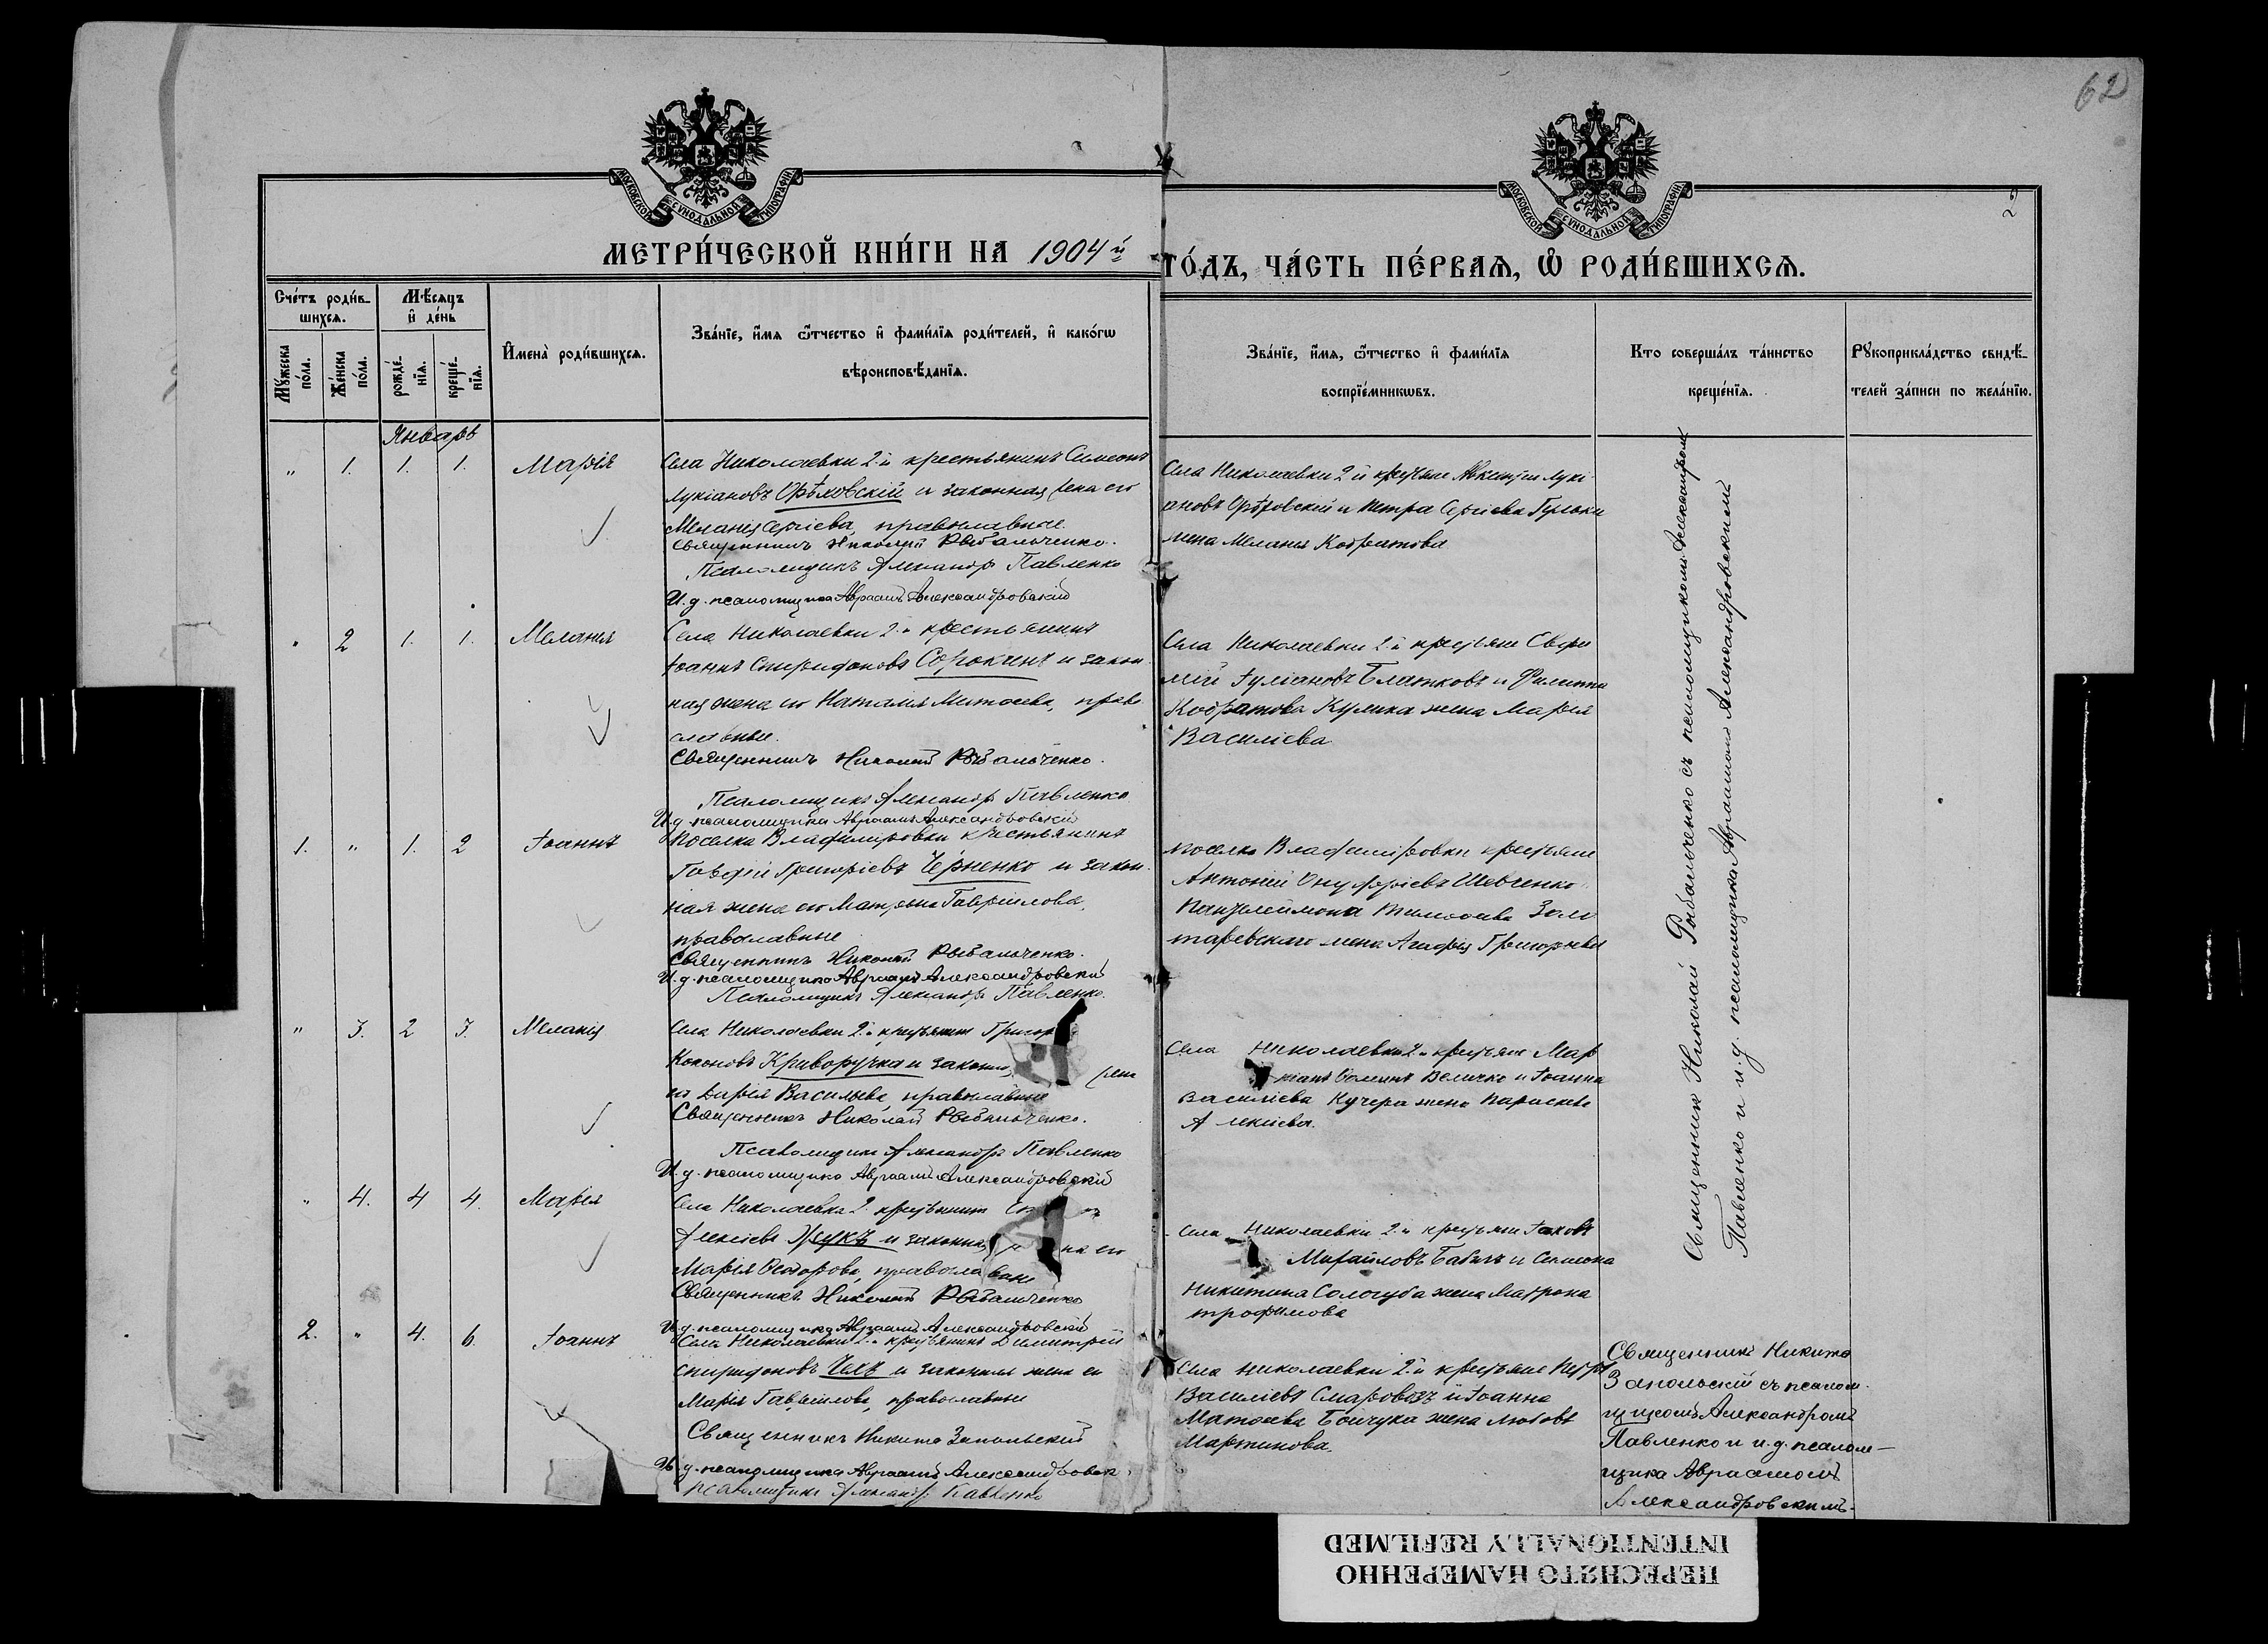 62
2
МОСКОВСКОЙ СУНОДАЛЬНОЙ ТИПОГРАФІИ
МОСКОВСКОЙ СУНОДАЛЬНОЙ ТИПОГРАФІИ
МЕТРИ́ЧЕСКОЙ КНИ́ГИ НА 1904й
ГО́ДЪ, ЧА́СТЬ ПЕ́РВАѦ, Ѡ РОДИ́ВШИХСѦ.
Счетъ родив-
шихсѧ.
Мужеска пола.
Женска пола.
Мѣсѧцъ и день
рожде-нїѧ.
креще-нїѧ.
Имена родившихсѧ.
Званїе, имѧ ѿтчество и фамилїѧ родителей, и какогѡ
вѣроисповѣданїѧ.
Званїе, имѧ, ѿтчество и фамилїѧ
воспрїемникѡвъ.
Кто совершалъ таинство
крещенїѧ.
Рꙋкоприкладство свидѣ-
телей записи по желанїю.
Январь
" 1. 1. 1. Марія
Села Николаевки 2й крестьянинъ Симеонъ
Лукіановъ Орѣховскій и законная жена его
Меланія Сергіева, православные
Священникъ Николай Рыбальченко.
Псаломщикъ Александръ Павленко
И.д. псаломщика Авраамъ Александровскій
Села Николаевки 2й крестьяне Лукі-
ановъ Орѣховскій и Петра Сергіева
жена Меланія Кодратова
" 2 1. 1. Меланія
Села Николаевки 2й крестьянинъ
Іоаннъ Спиридоновъ Сорокинъ и закон
ная жена его Наталія Матѳеева, право
славные.
Священникъ Николай Рыбальченко.
Псаломщикъ Александръ Павленко
И.д. псаломщика Авраамъ Александровскій
Села Николаевки 2й крестьяне Евфи
мій Іуліановъ и Филиппа
Кодратова Кулика жена Марія
Василіева
1. " 1. 2 Іоаннъ
Поселка Владиміровки крестьянинъ
Григоріевъ Черненко и закон
ная жена его Матрона Гавріилова,
православные
Священникъ Николай Рыбальченко.
И.д. псаломщика Авраамъ Александровскій
Псаломщикъ Александръ Павленко.
поселка Владиміровки крестьяне
Антоній Онуфріевъ Шевченко
Пантелеймона Золо
таревскаго жена Агафія Григорьева
" 3. 2 3. Меланія
Села Николаевки 2й крестьянинъ
Кононовъ Криворучка и законн жена
его Дарія Васильева, православные
Священникъ Николай Рыбальченко.
Псаломщикъ Александръ Павленко
И.д. псаломщика Авраамъ Александровскій
Села Николаевки 2й крестьяне Мар
кіанъ Величко и Іоанна
Василіева Кучера жена Параскева
Алексіева.
" 4. 4 4. Марія
Села Николаевки 2й крестьянинъ
Алексіевъ Жукъ и законная жена его
Марія Ѳедорова, православные
Священникъ Николай Рыбальченко
И.д. псаломщика Авраамъ Александровскій
Села Николаевки 2й крестьяне Іаковъ
Михайловъ Бабичъ и Симеона
Никитина Сологуба жена Матрона
Трофимова
2. " 4. 6. Іоаннъ
Села Николаевки 2й крестьянинъ Димитрій
Спиридоновъ Чехъ и законная жена его
Марія Гавріилова, православные
Священникъ Никита Запольскій
И.д. псаломщика Авраамъ Александровск.
Псаломщикъ Александръ Павленко
Села Николаевки 2й крестьяне Петръ
Василіевъ Смаровозъ и Іоанна
Матѳеева Бойчука жена Любовь
Мартинова.
Священникъ Николай Рыбальченко съ псаломщикомъ Александромъ
Павленко и и.д. псаломщика Авраамомъ Александровскимъ
Священникъ Никита
Запольскій съ псалом-
щикомъ Александромъ
Павленко и и.д. псалом-
щика Авраамомъ
Александровскимъ.
ПЕРЕСНЯТО НАМЕРЕННО
INTENTIONALLY REFILMED